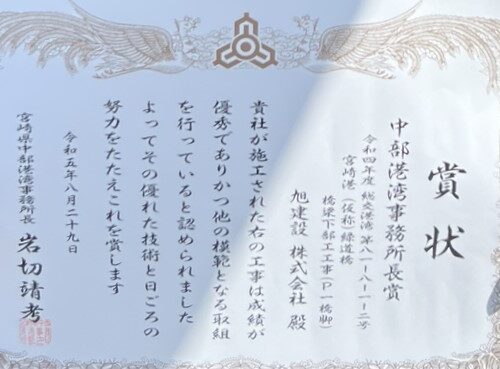 賞状
中部港湾事務所長賞
令和四年度 総 港湾 第八一八ー一ー二号
宮崎港 (仮称)緑道橋
橋梁下部工工事(P一橋脚)
旭建設 株式会社 殿
貴社が施工された右の工事は成績が
優秀でありかつ他の模範となる取組
を行っていると認められました
よってその優れた技術と日ごろの
努力をたたえこれを賞します
令和五年八月二十九日
宮崎県中部港湾事務所長 岩切靖考